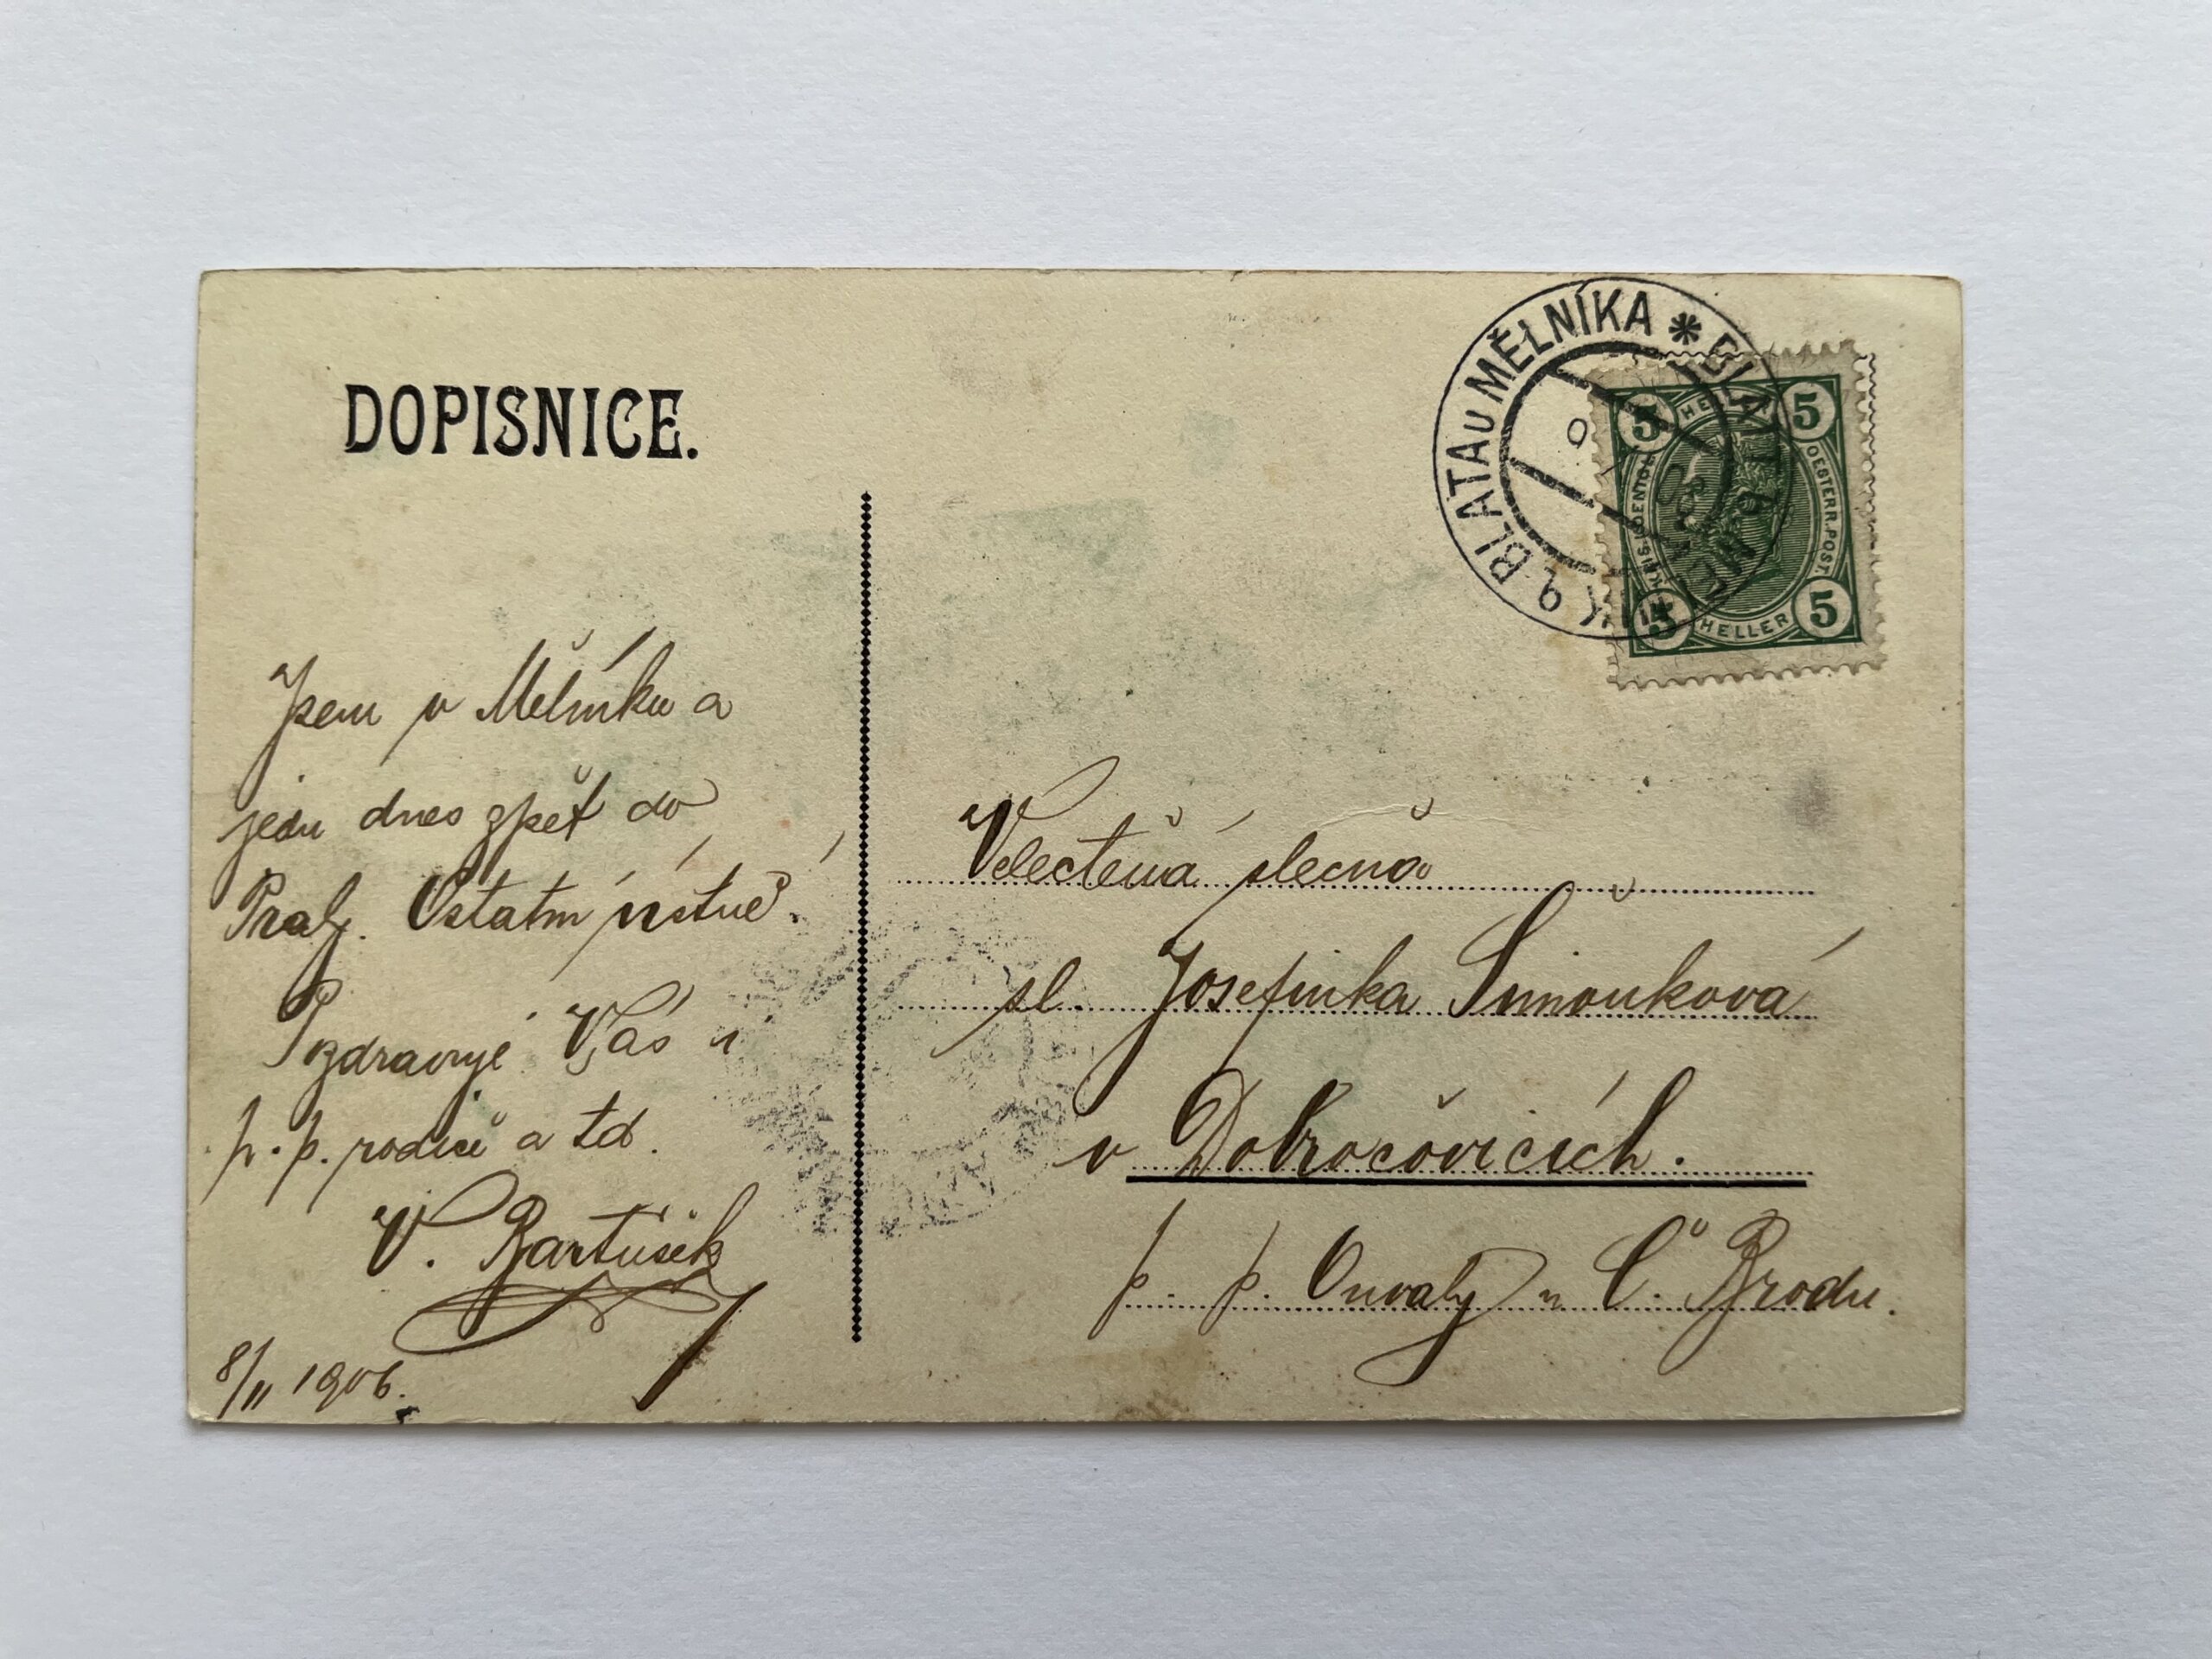 DOPISNICE.
Jsem v Mělníku a
jedu dnes zpět do
Prahy. Ostatní ústně.
Pozdravuje Vás i
p. p. rodiče a td.
V. Bartůšek
8/II 1906.
BLATA U MĚLNÍKA *
5 HELLER 5
OESTERR. POST.
5 HELLER 5
Velectěná slečna
sl. Josefinka Šimůnková
v Dobročovicích.
p. p. Ouvaly u Č. Brodu.